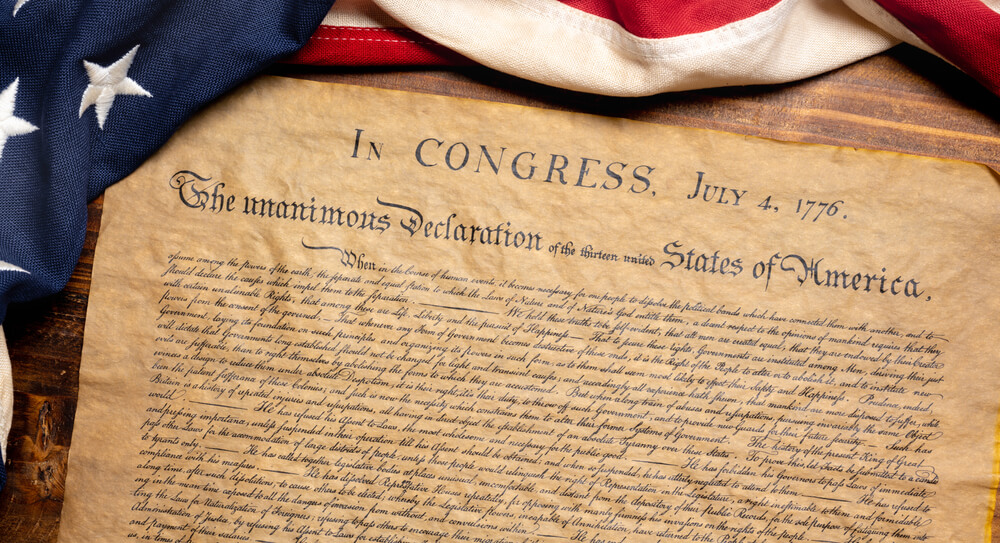 In CONGRESS, July 4, 1776.
The unanimous Declaration of the thirteen united States of America,
When in the Course of human events, it becomes necessary for one people to dissolve the political bands which have connected them with another, and to
assume among the powers of the earth, the separate and equal station to which the Laws of Nature and of Nature's God entitle them, a decent respect to the opinions of mankind requires that they
should declare the causes which impel them to the separation. We hold these truths to be self-evident, that all men are created equal, that they are endowed by their Creator
with certain unalienable Rights, that among these are Life, Liberty and the pursuit of Happiness. That to secure these rights, Governments are instituted among Men, deriving their just
powers from the consent of the governed, That whenever any Form of Government becomes destructive of these ends, it is the Right of the People to alter or to abolish it, and to institute new
Government, laying its foundation on such principles and organizing its powers in such form, as to them shall seem most likely to effect their Safety and Happiness. Prudence, indeed,
will dictate that Governments long established should not be changed for light and transient causes; and accordingly all experience hath shewn, that mankind are more disposed to suffer, while
evils are sufferable, than to right themselves by abolishing the forms to which they are accustomed. But when a long train of abuses and usurpations, pursuing invariably the same Object
evinces a design to reduce them under absolute Despotism, it is their right, it is their duty, to throw off such Government, and to provide new Guards for their future security. Such has
been the patient sufferance of these Colonies; and such is now the necessity which constrains them to alter their former Systems of Government. The history of the present King of Great
Britain is a history of repeated injuries and usurpations, all having in direct object the establishment of an absolute Tyranny over these States. To prove this, let Facts be submitted to a candid
world. He has refused his Assent to Laws, the most wholesome and necessary for the public good. He has forbidden his Governors to pass Laws of immediate
and pressing importance, unless suspended in their operation till his Assent should be obtained; and when so suspended, he has utterly neglected to attend to them. He has refused to
pass other Laws for the accommodation of large districts of people, unless those people would relinquish the right of Representation in the Legislature, a right inestimable to them and formidable
to tyrants only. He has called together legislative bodies at places unusual, uncomfortable, and distant from the depository of their public Records, for the sole purpose of fatiguing them into
compliance with his measures. He has dissolved Representative Houses repeatedly, for opposing with manly firmness his invasions on the rights of the people.
long time, after such dissolutions, to cause others to be elected; whereby the Legislative powers, incapable of Annihilation, have returned to the People
ing in the mean time exposed to all the dangers of invasion from without, and convulsions within.
ling the Laws for Naturalization of Foreigners; refusing to pass others to encourage their
Administration of Justice, by refusing his Assent to Laws for
and payment of their salaries.
us, in times of